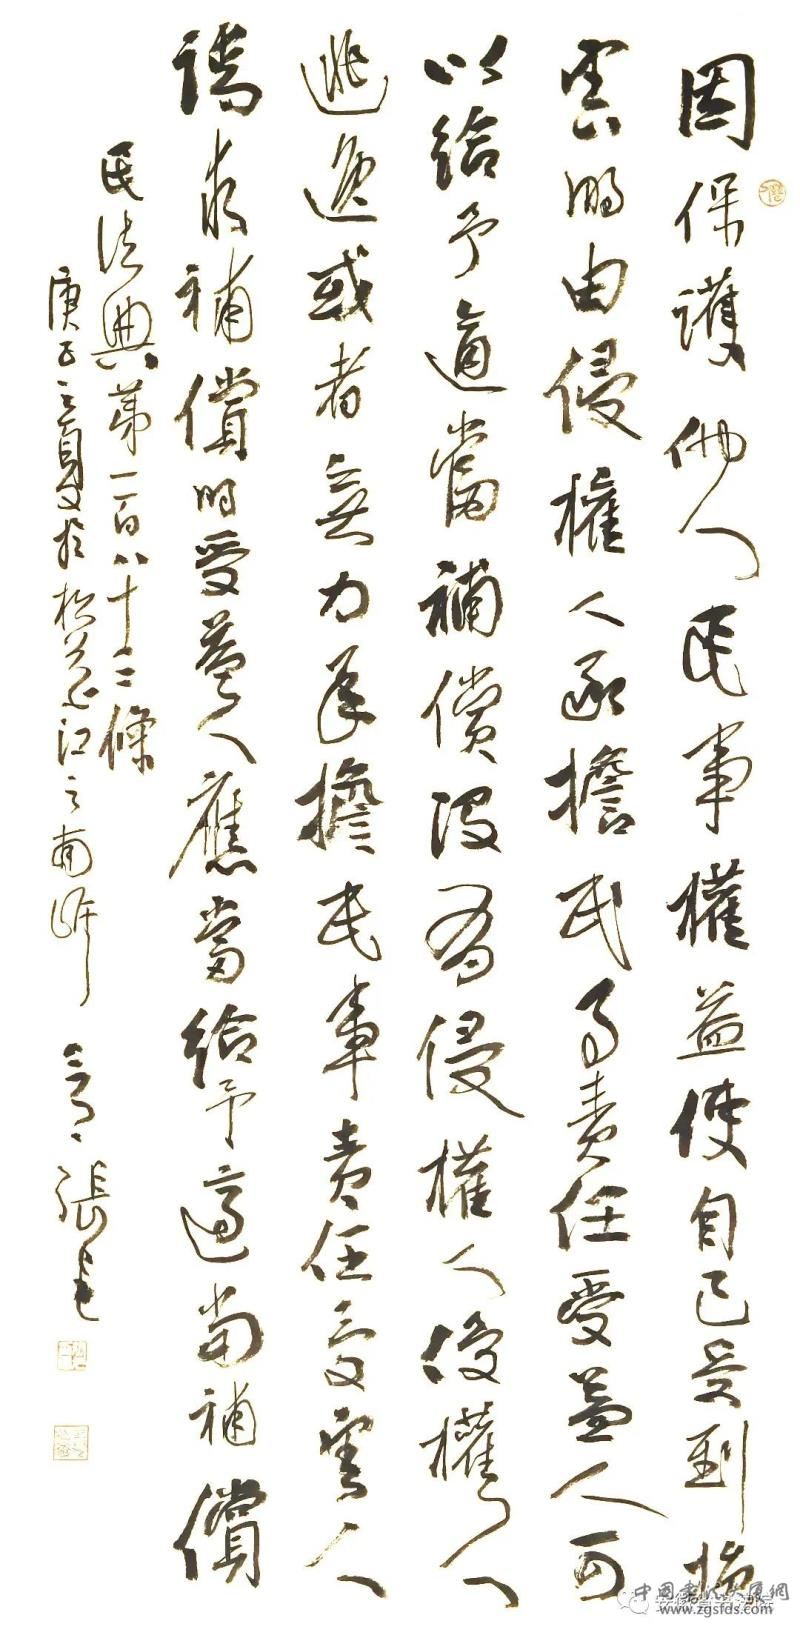 因保護他人民事權益使自己受到損
害的由侵權人承擔民事責任受益人可
以給予適當補償沒有侵權人侵權人
逃逸或者無力承擔民事責任受害人
請求補償的受益人應當給予適當補償
民法典第一百八十三條
庚子之夏於松花江之南岸 張
中國書法大展網
www.zgsfds.com